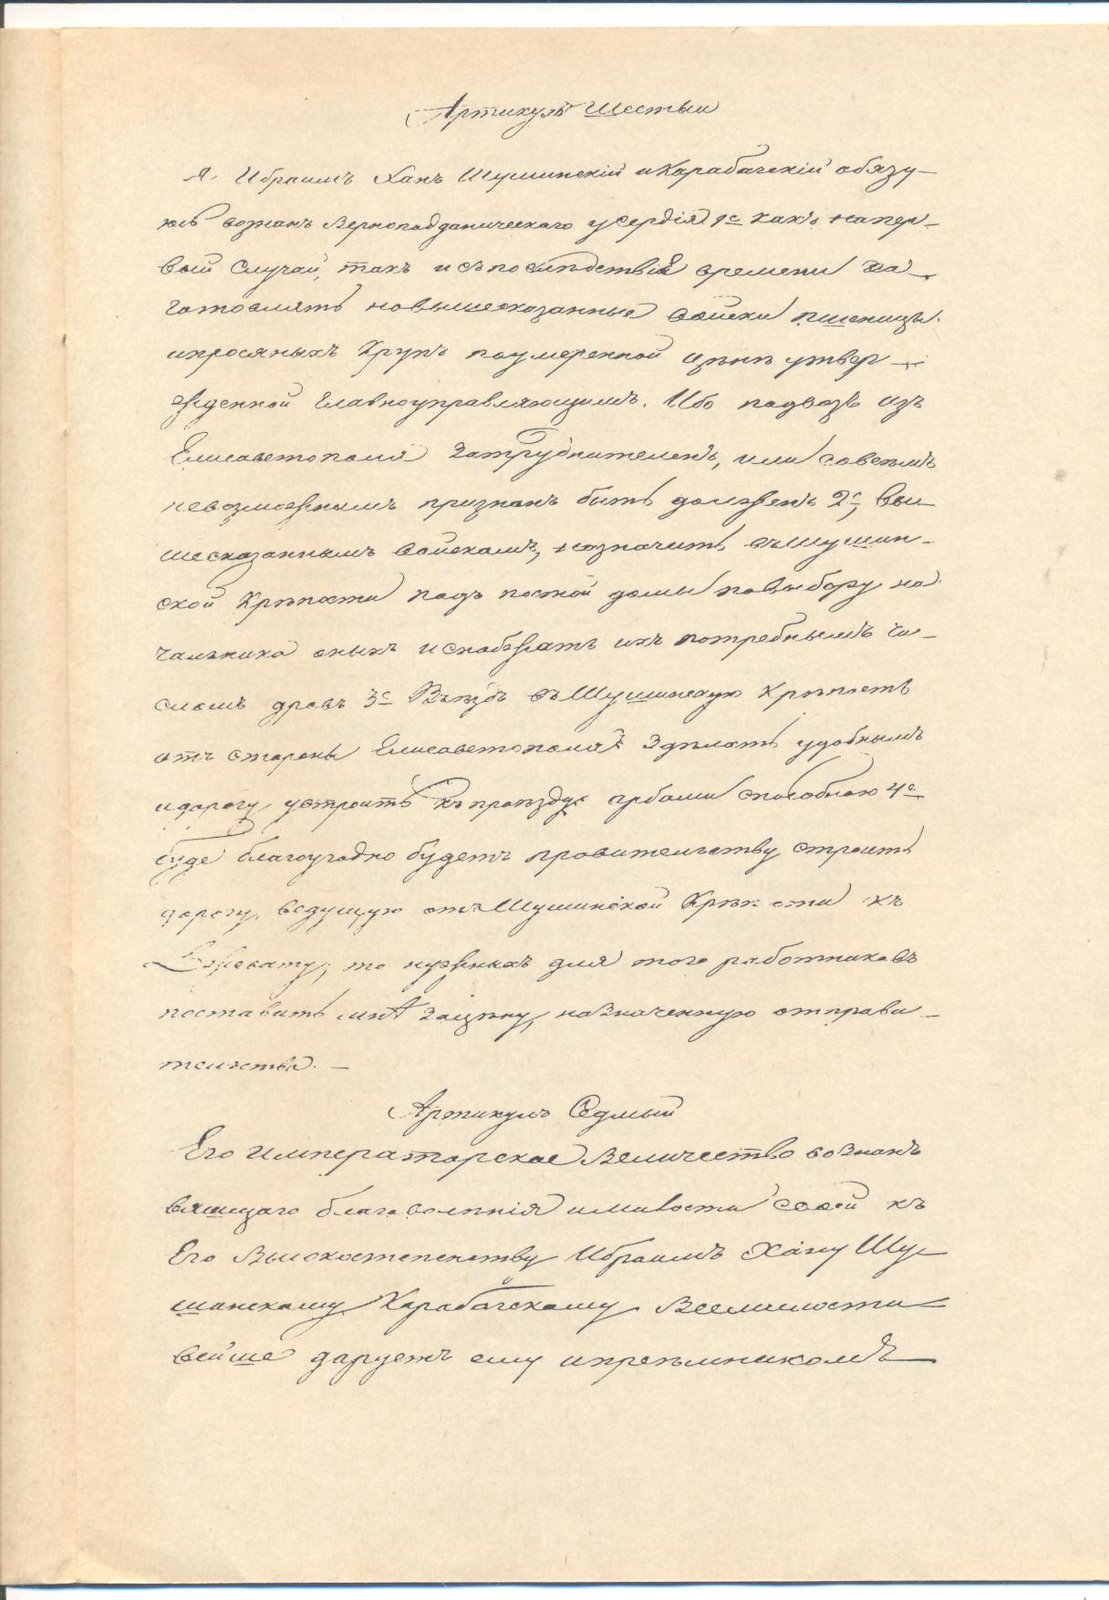 Артикулъ Шестыи
Я. Ибраимъ Ханъ Шушинскій и Карабагскій обязу-
юсь вознакъ Верноподданическаго усердія 1е какъ напер-
вый Случай, такъ и въ послѣдствіи времени за
готовлять навышесказанные войски пшеницы
ипросяныхъ Крупъ поумеренной цѣнѣ утвер-
жденной Главноуправляющимъ. Ибо подвозъ изъ
Елисаветополя Затруднителенъ, или совсемъ
невозможнымъ признанъ быть долженъ 2е, вы
шесказаннымъ войскамъ, назначить въ Шушин-
ской Крѣпости подъ постой домы повыбору на
чальника оныхъ и снабжать ихъ потребнымъ чи-
сломъ дровъ 3е Въѣздъ въ Шушинскую Крѣпость
отъ стороны Елисаветополя Зделать удобнымъ
и дорогу устроить къ проѣзду арбами способною 4е
буде благоугодно будетъ правительству строить
дорогу, ведущую отъ Шушинской Крѣпости къ
то нужныхъ для того работниковъ
поставить мнѣ Зацѣну, назначенную отправи-
тельства. —
Артикулъ Седмый
Его Императорское Величество вознакъ
вящщаго благоволѣнія имилости своей къ
Его Высокостепенству Ибраимъ Хану Шу-
шинскому Карабагскому Всемилости
вейше даруетъ ему ипреѣмникомъ